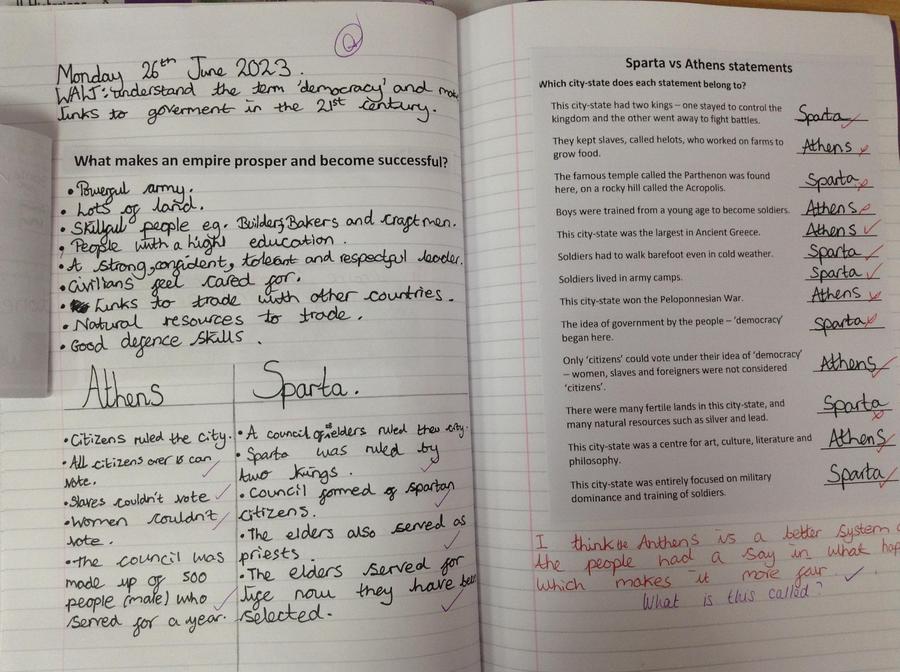 Monday 26th June 2023.
WALT: understand the term 'democracy' and
links to goverment in the 21st century.
What makes an empire prosper and become successful?
• Powerful army.
• Lots of land.
• Skillful people eg. Builders, Bakers and craftmen.
• People with a high education.
• A strong, confident, tolerant and respectful leader.
• Civilians feel cared for.
• Links to trade with other countries.
• Natural resources to trade.
• Good defence skills.
Athens
• Citizens ruled the city.
• All citizens over 18 can
vote.
• Slaves couldn't vote
• Women couldn't
vote.
• The council was
made up of 500
people (male) who
served for a year.
Sparta.
• A council of elders ruled the city.
• Sparta was ruled by
two kings.
• Council formed of spartan
citizens.
• The elders also served as
priests.
• The elders served for
life now they have been
selected.
Sparta vs Athens statements
Which city-state does each statement belong to?
This city-state had two kings – one stayed to control the
kingdom and the other went away to fight battles. Sparta
They kept slaves, called helots, who worked on farms to
grow food. Athens
The famous temple called the Parthenon was found
here, on a rocky hill called the Acropolis. Sparta
Boys were trained from a young age to become soldiers. Athens
This city-state was the largest in Ancient Greece. Athens
Soldiers had to walk barefoot even in cold weather. Sparta
Soldiers lived in army camps. Sparta
This city-state won the Peloponnesian War. Athens
The idea of government by the people – 'democracy'
began here. Sparta
Only 'citizens' could vote under their idea of 'democracy'
– women, slaves and foreigners were not considered
'citizens'. Athens
There were many fertile lands in this city-state, and
many natural resources such as silver and lead. Sparta
This city-state was a centre for art, culture, literature and
philosophy. Athens
This city-state was entirely focused on military
dominance and training of soldiers. Sparta
I think the Anthens is a better system
the people had a say in what
which makes it more fair
What is this called?